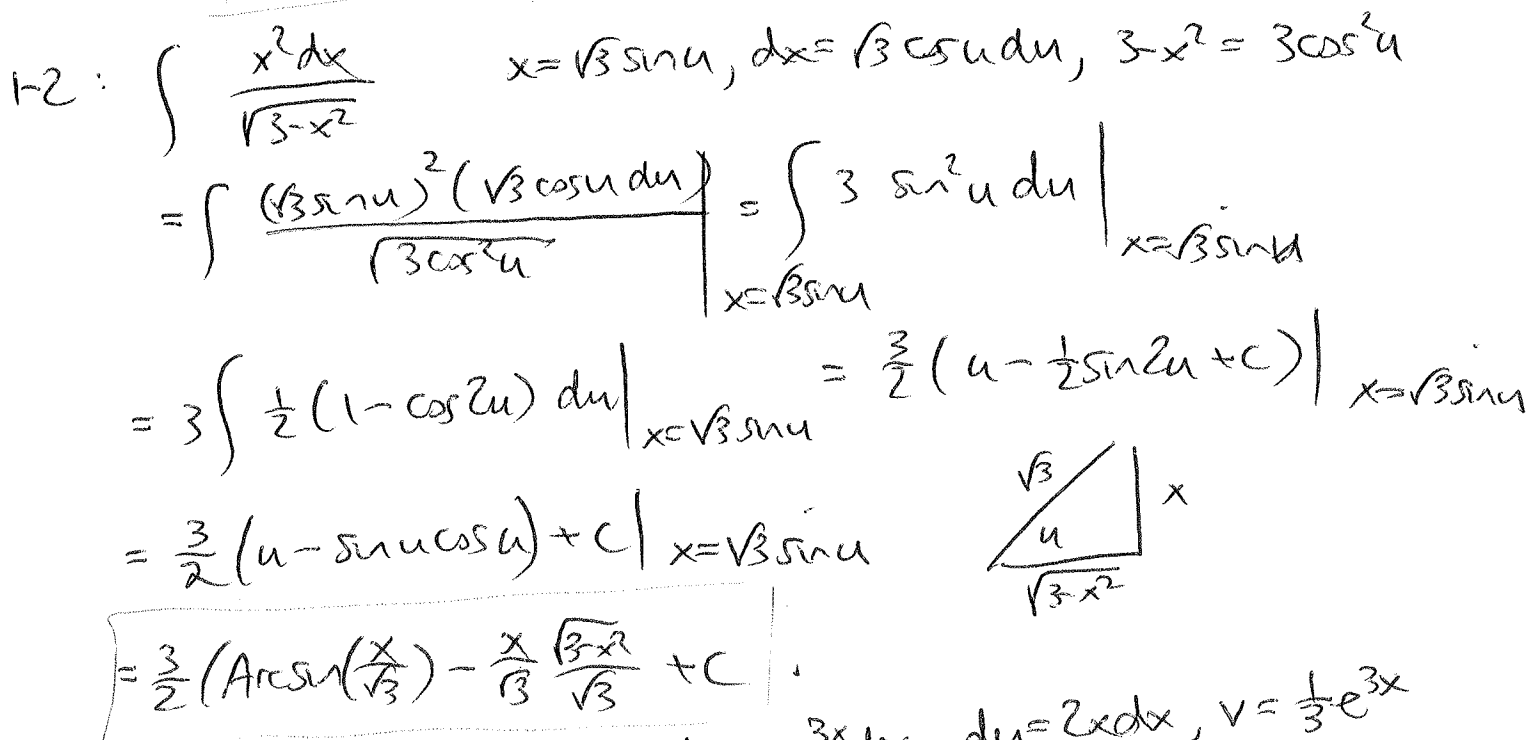 1-2 : ∫ x²dx / √(3-x²)   x=√3 sinu, dx=√3 cosudu, 3-x² = 3cos²u
= ∫ (√3sinu)²(√3cosudu) / √(3cos²u) |x=√3sinu = ∫ 3 sin²u du |x=√3sinu
= 3∫ ½(1-cos2u) du |x=√3sinu = 3/2 (u - ½sin2u +C) |x=√3sinu
= 3/2 (u - sinucosu) + C | x=√3sinu
√3 x
u
√(3-x²)
= 3/2 (Arcsin(x/√3) - x/√3 √(3-x²)/√3 +C .
du=2xdx, v=⅓e^3x